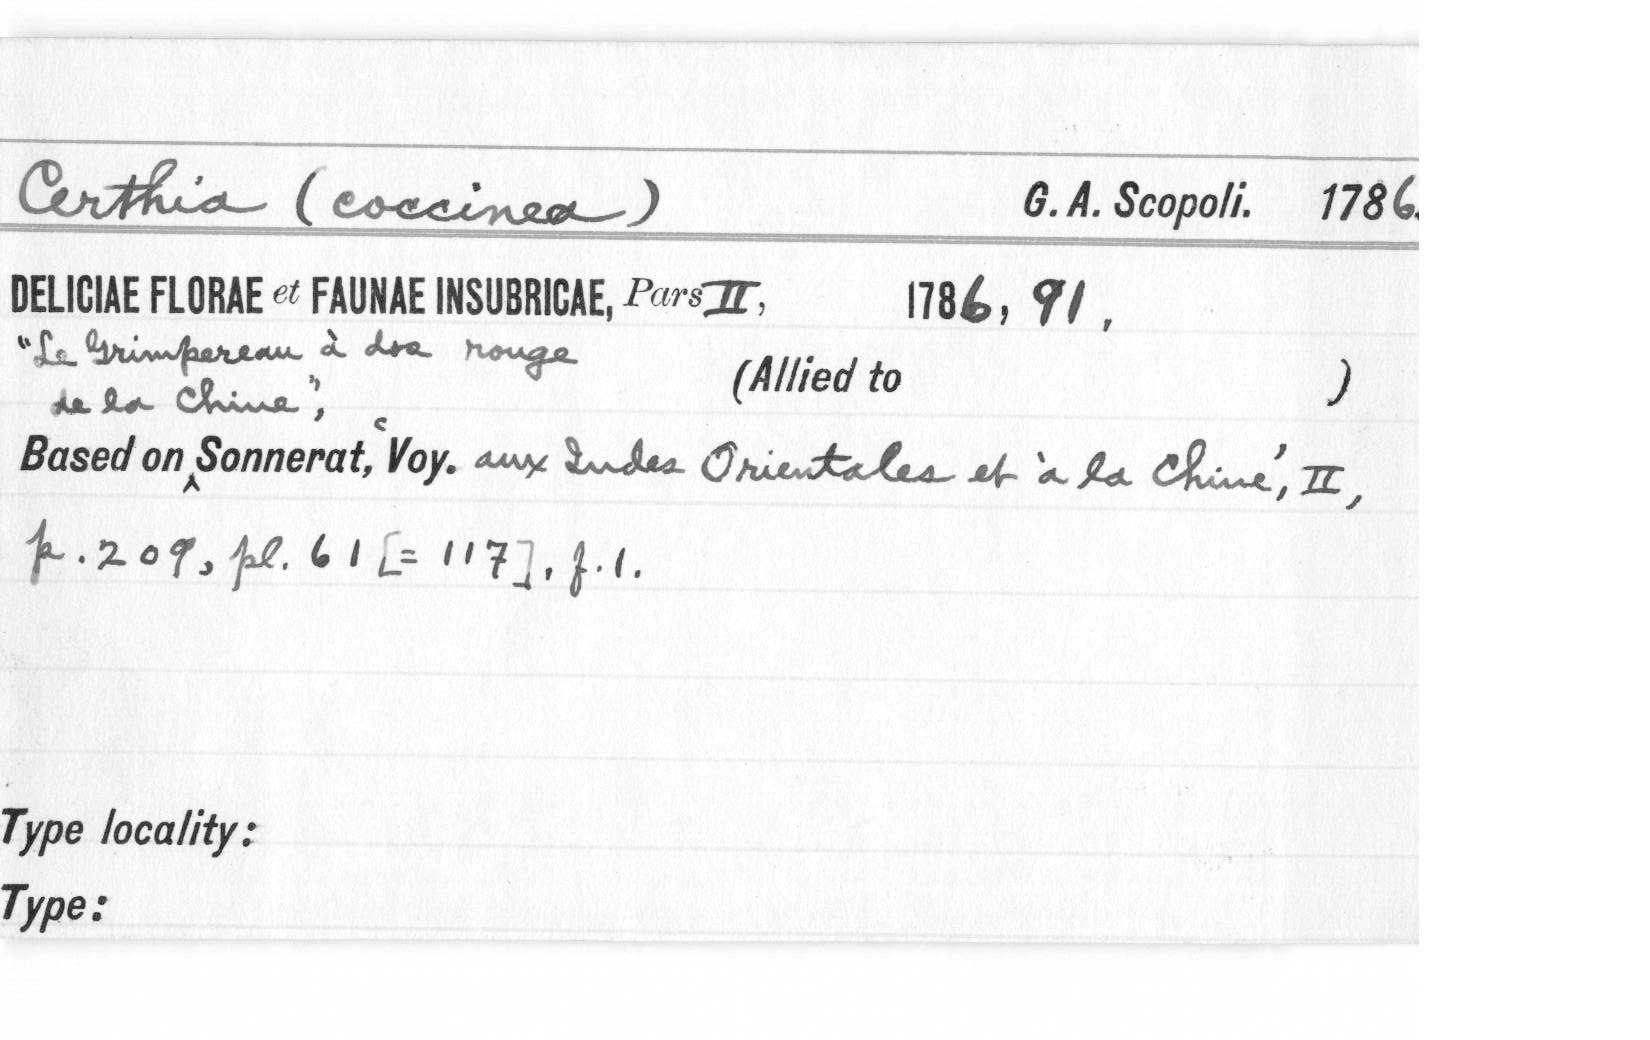 Certhia (coccinea) G. A. Scopoli. 1786.
DELICIAE FLORAE et FAUNAE INSUBRICAE, Pars II, 1786, 91,
"Le Grimpereau à dos rouge
(Allied to )
de la Chine",
Based on ‸ Sonnerat, ‘Voy. aux Indes Orientales et à la Chine’, II,
p. 209, pl. 61 [= 117], f. 1.
Type locality:
Type: